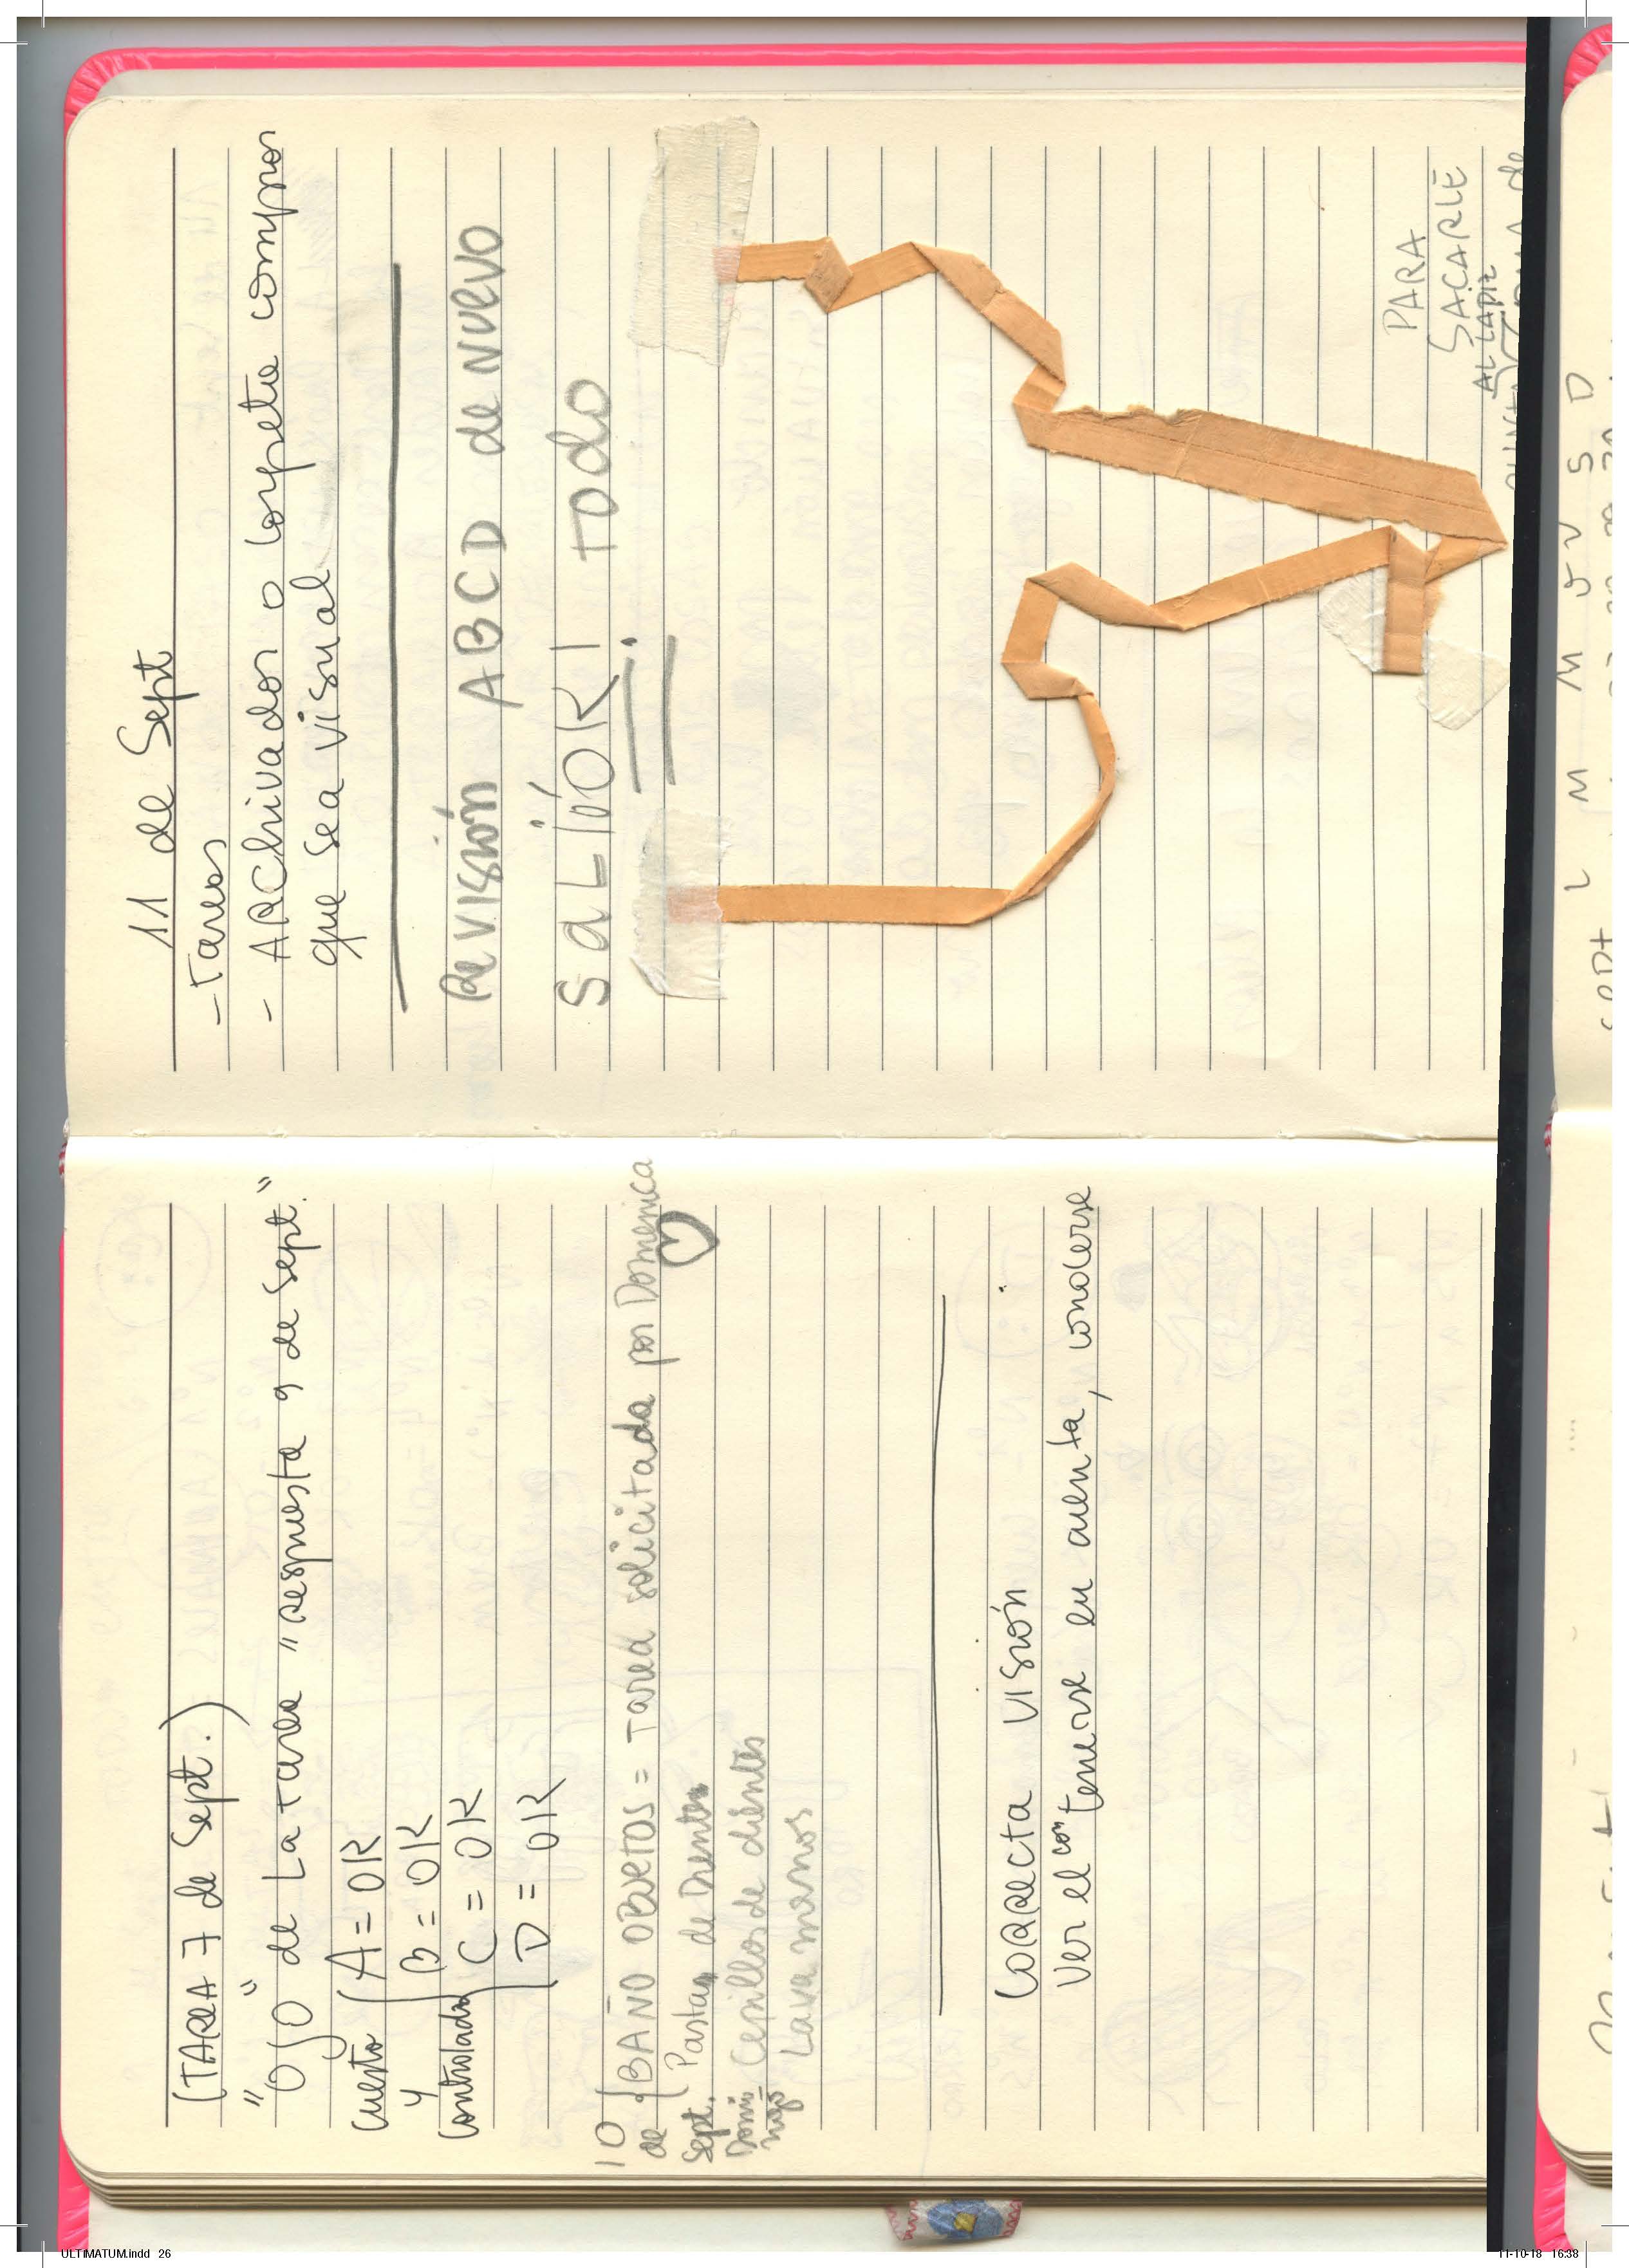 (TAREA 7 de Sept.)
"OJO" de La tarea "respuesta 9 de Sept."
Cuesta y Controlada
A = OK
B = OK
C = OK
D = OK
10 de Sept. Domingo
BAÑO OBJETOS = TAREA solicitada por Domenica
Pastas de Dientes
Cepillos de dientes
Lava manos
CORRECTA VISIÓN
Ver el con tenerse en cuenta, conocerse
11 de Sept
- Tareas
- ARChivador o Carpeta comprar
que sea visual
ReVISIÓN ABCD de NUEVO
SaLIÓ OK! TODO
PARA
SACARLE
AL LÁPIZ
PUNTA
SEPT L M M J V S D
ULTIMATUM.indd 26
11-10-18 16:38